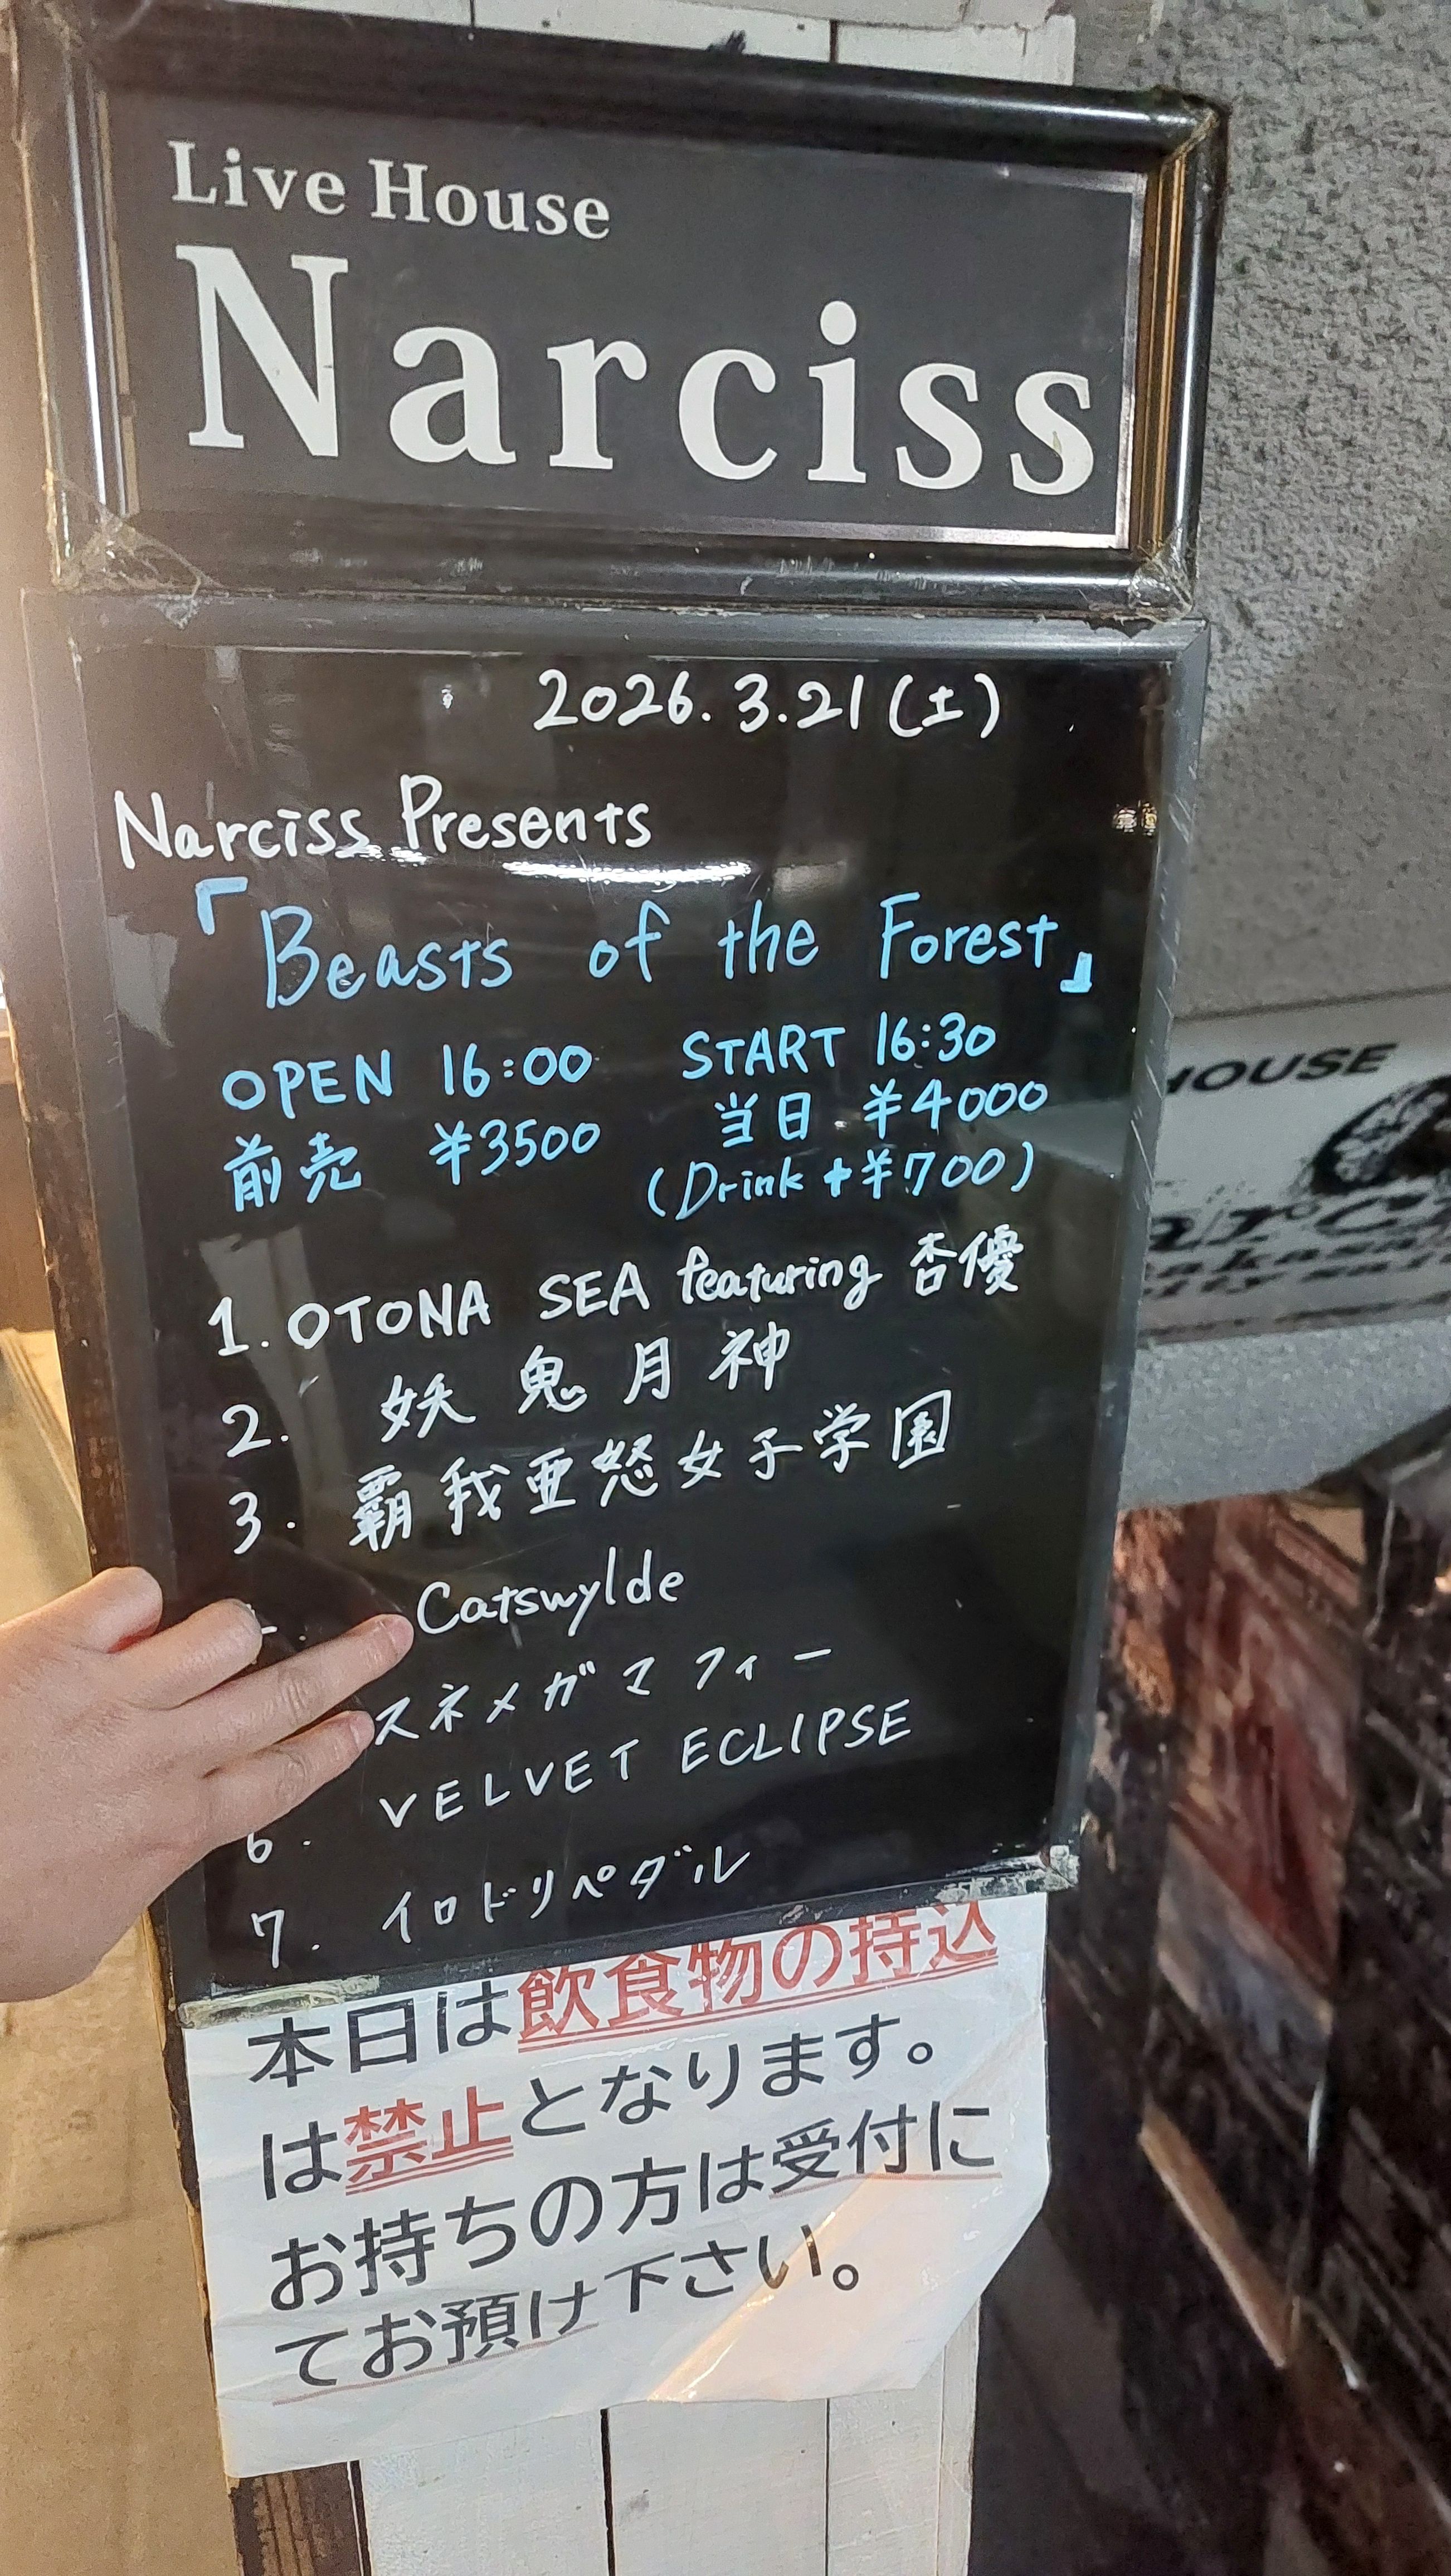 Live House
Narciss
2026.3.21(土)
Narciss Presents
「Beasts of the Forest」
OPEN 16:00 START 16:30
前売 ¥3500 当日 ¥4000
(Drink+¥700)
1. OTONA SEA featuring 杏優
2. 妖鬼月神
3. 覇我亜怒女子学園
Catswylde
スネメガマフィー
6. VELVET ECLIPSE
7. イロドリペダル
本日は飲食物の持込
は禁止となります。
お持ちの方は受付に
てお預け下さい。
HOUSE